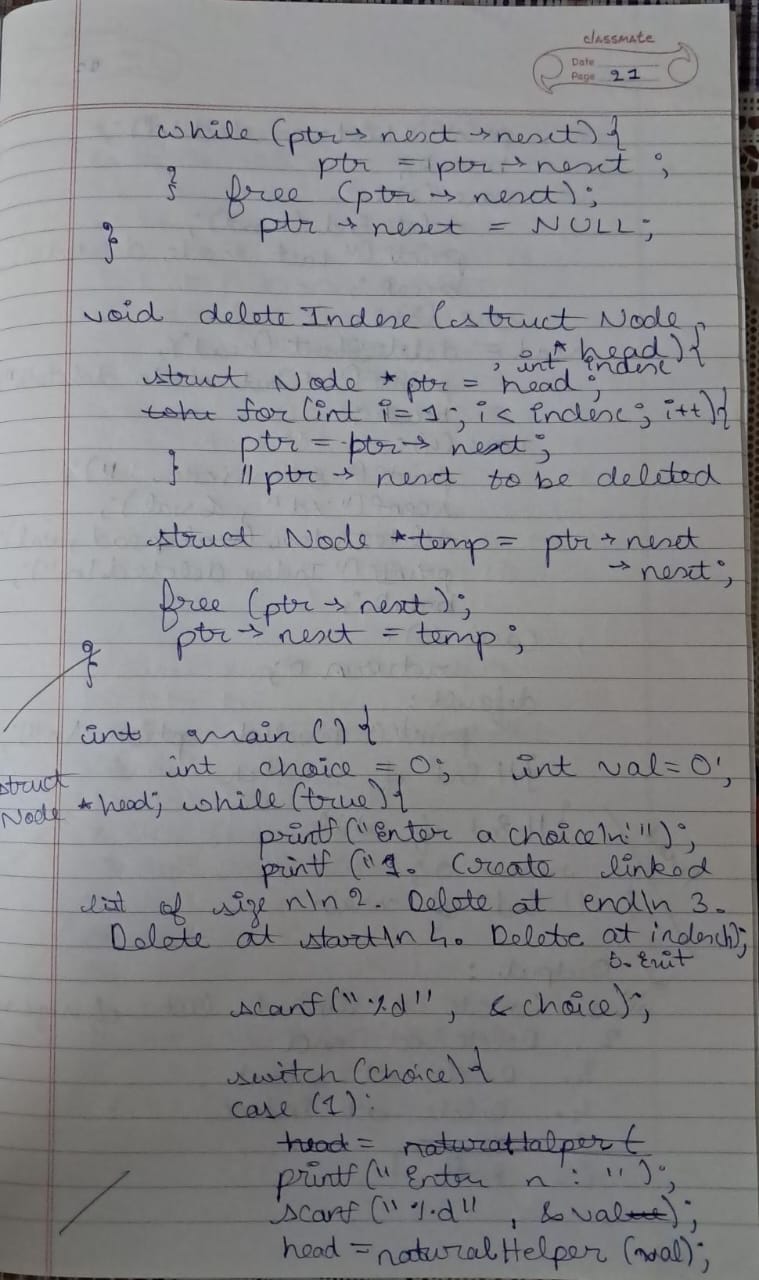 classmate
Date
Page 21
while (ptr → next → next) {
ptr = ptr → next ;
} free (ptr → next);
ptr → next = NULL;
}
void delete Index (struct Node
* head) {
, int index
struct Node *ptr = head;
for (int i=1; i< index; i++){
ptr = ptr → next;
} // ptr → next to be deleted
struct Node *temp = ptr → next
→ next;
free (ptr → next);
ptr → next = temp;
}
int main () {
int choice = 0; int val = 0;
struct
Node * head; while (true) {
printf ("Enter a choice\n:");
printf ("1. Create linked
list of size n\n 2. Delete at end\n 3.
Delete at start\n 4. Delete at index\n);
5. Exit
scanf ("%d", & choice);
switch (choice) {
case (1):
head = naturalHalper (
printf (" Enter n : ");
scanf ("%d" , & val);
head = naturalHelper (val);